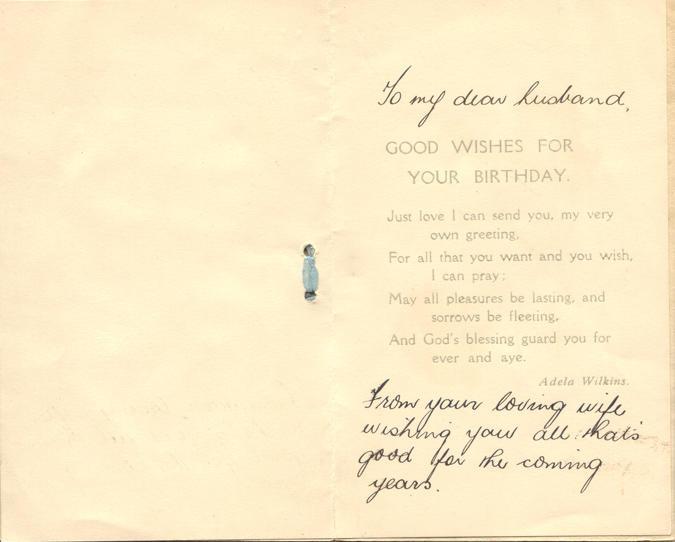 To my dear husband,
GOOD WISHES FOR
YOUR BIRTHDAY.
Just love I can send you, my very
own greeting,
For all that you want and you wish,
I can pray;
May all pleasures be lasting, and
sorrows be fleeting,
And God's blessing guard you for
ever and aye.
Adela Wilkins.
From your loving wife
wishing you all that's
good for the coming
years.